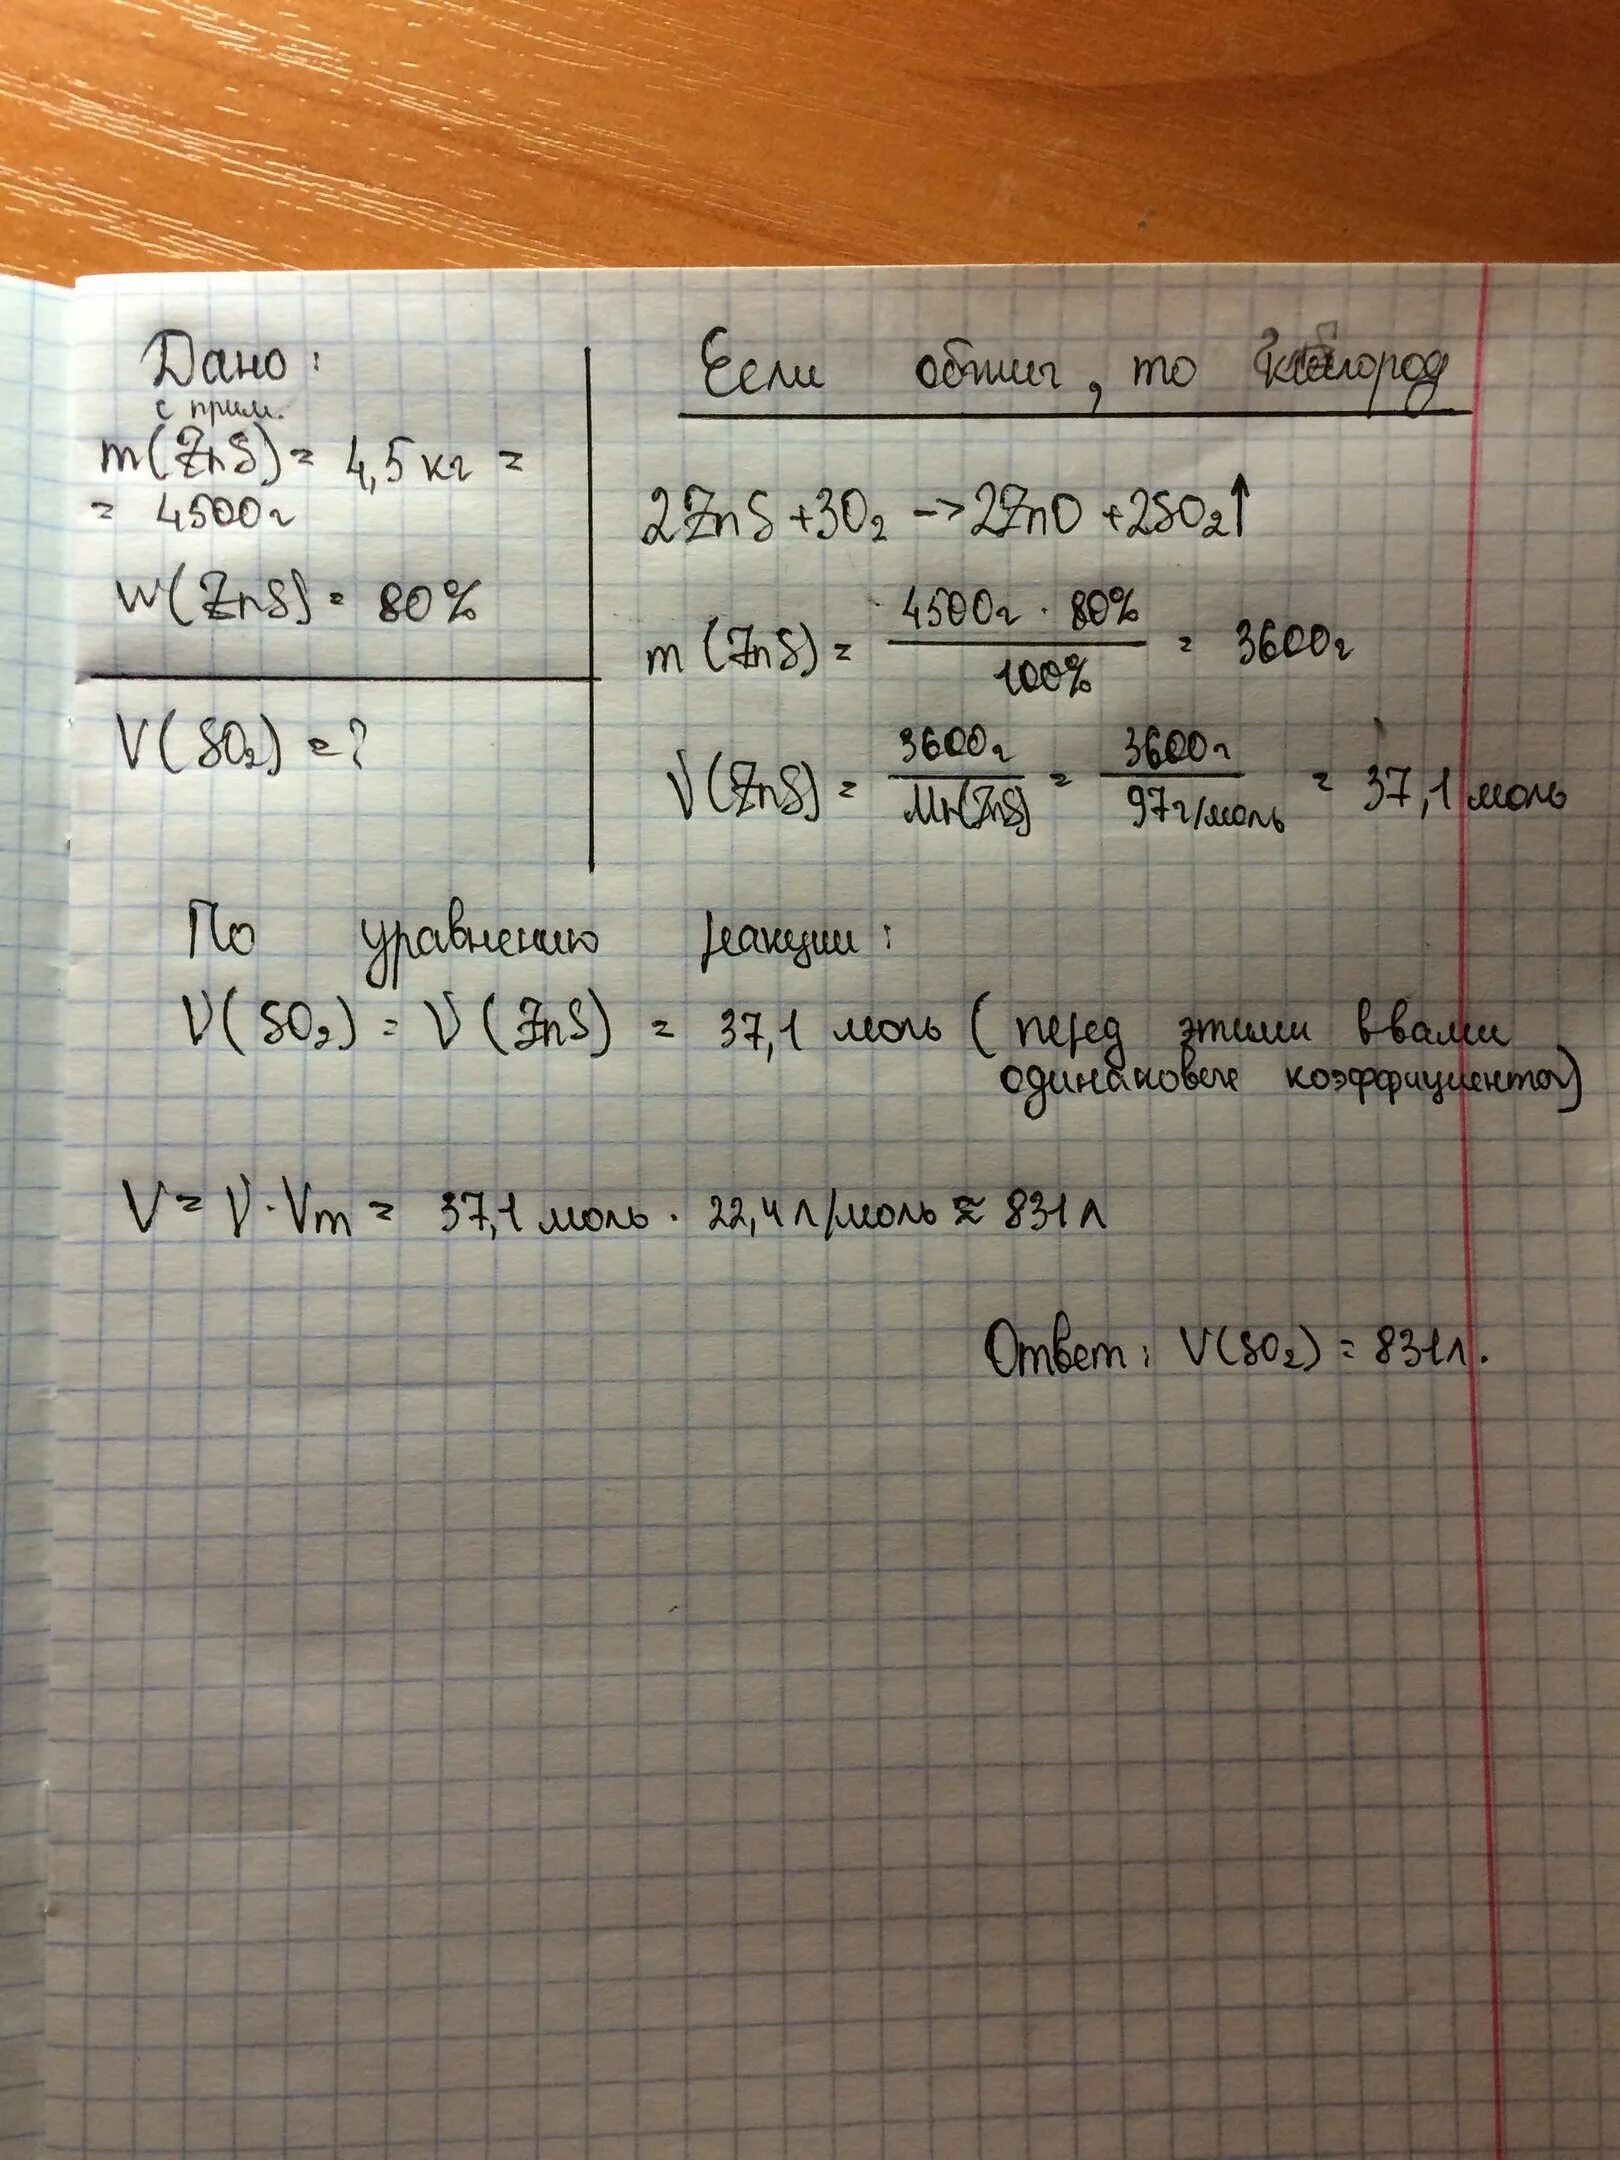 Дано:
с прим.
m(ZnS) = 4,5 кг =
= 4500г
w(ZnS) = 80%
V(SO2) = ?
Если обжиг, то кислород
2ZnS + 3O2 -> 2ZnO + 2SO2↑
m(ZnS) = 4500г · 80% / 100% = 3600г
ν(ZnS) = 3600г / Mr(ZnS) = 3600г / 97г/моль = 37,1 моль
По уравнению реакции:
ν(SO2) = ν(ZnS) = 37,1 моль (перед этими в-вами
одинаковые коэффициенты)
V = ν · Vm = 37,1 моль · 22,4 л/моль ≈ 831 л
Ответ: V(SO2) = 831л.